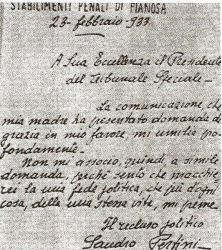 STABILIMENTI PENALI DI PIANOSA
23 - febbraio - 933
A Sua Eccellenza il Presidente
del Tribunale Speciale -
La comunicazione, che
mia madre ha presentato domanda di
grazia in mio favore, mi umilia pro
fondamente.
Non mi associo, quindi, a simile
domanda, perché sento che macchie
rei la mia fede politica, che più d'ogni
cosa, della mia stessa vita, mi preme
Il recluso politico
Sandro Pertini